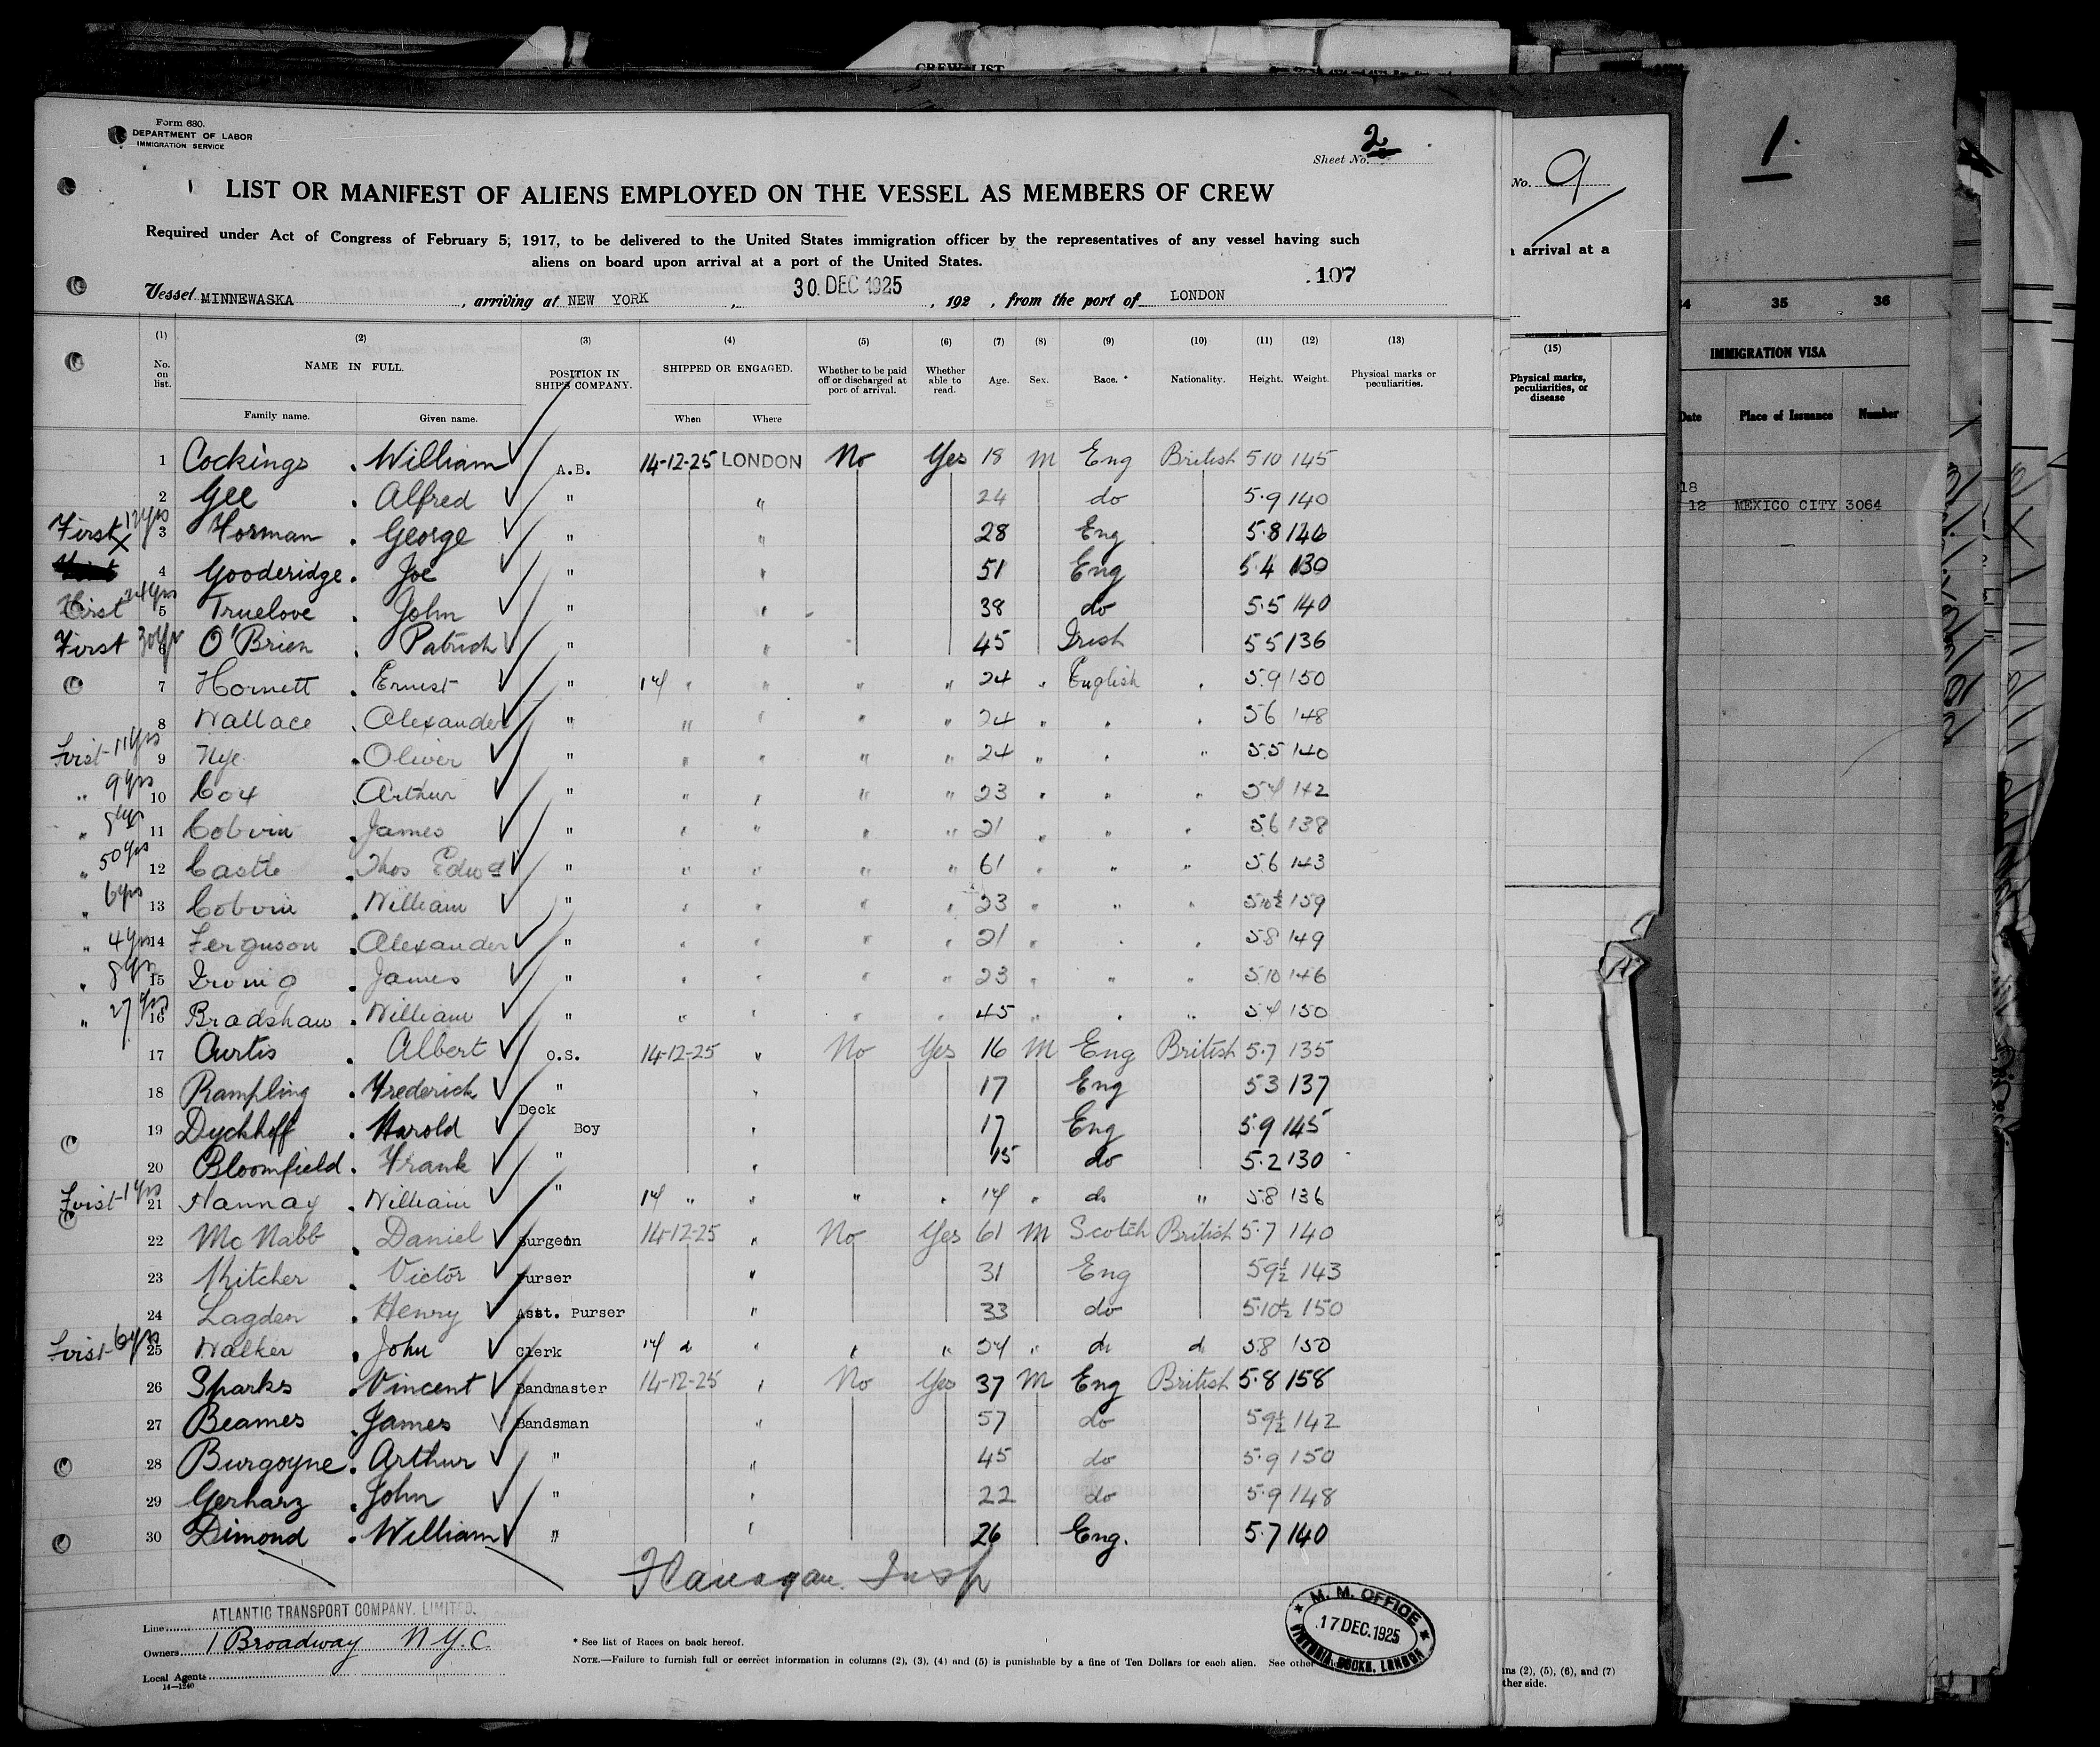 CREW LIST
Form 680.
DEPARTMENT OF LABOR
IMMIGRATION SERVICE
Sheet No. 2
LIST OR MANIFEST OF ALIENS EMPLOYED ON THE VESSEL AS MEMBERS OF CREW
Required under Act of Congress of February 5, 1917, to be delivered to the United States immigration officer by the representatives of any vessel having such
aliens on board upon arrival at a port of the United States.
107
Vessel MINNEWASKA, arriving at NEW YORK, 30 DEC 1925, 192 , from the port of LONDON
(1) (2) (3) (4) (5) (6) (7) (8) (9) (10) (11) (12) (13)
No. on list. NAME IN FULL. POSITION IN SHIP'S COMPANY. SHIPPED OR ENGAGED. Whether to be paid off or discharged at port of arrival. Whether able to read. Age. Sex. Race. * Nationality. Height. Weight. Physical marks or peculiarities.
Family name. Given name. When Where
1 Cockings William A.B. 14-12-25 LONDON No Yes 18 M Eng British 5 10 145
2 Gee Alfred " " 24 do 5.9 140
First 12yrs 3 Horman George " " 28 Eng 5.8 146
4 Gooderidge Joe " " 51 Eng 5.4 130
First 24yrs 5 Truelove John " " 38 do 5.5 140
First 30yr 6 O'Brien Patrick " " 45 Irish 5 5 136
7 Hornett Ernest " 14 " " " " 24 " English " 5.9 150
8 Wallace Alexander " " " " " 24 " " " 5 6 148
First 11yrs 9 Nye Oliver " " " " " 24 " " " 5.5 140
" 9yrs 10 Cox Arthur " " " " " 23 " " " 5 4 142
" 8yrs 11 Colvin James " " " " " 21 " " " 5.6 138
" 50yrs 12 Castle Thos Edwd " " " " " 61 " " " 5.6 143
" 6yrs 13 Colvin William " " " " " 23 " " " 5 10½ 159
" 4yrs 14 Ferguson Alexander " " " " " 21 " " " 5.8 149
" 8yrs 15 Irving James " " " " " 23 " " " 5.10 146
" 27yrs 16 Bradshaw William " " " " " 45 " " " 5 4 150
17 Curtis Albert O.S. 14-12-25 " No Yes 16 M Eng British 5.7 135
18 Rampling Frederick " " 17 Eng 5 3 137
19 Dyckhoff Harold Deck Boy " 17 Eng 5.9 145
20 Bloomfield Frank " " 15 do 5.2 130
First 1yrs 21 Hannay William " 14 " " " " 17 " do " 5.8 136
22 Mc Nabb Daniel Surgeon 14-12-25 " No Yes 61 M Scotch British 5.7 140
23 Mitcher Victor Purser " 31 Eng 5 9½ 143
24 Lagden Henry Asst. Purser " 33 do 5.10½ 150
First 6yrs 25 Walker John Clerk 14 d " " " 24 " do d 5.8 150
26 Sparks Vincent Bandmaster 14-12-25 " No Yes 37 M Eng British 5.8 158
27 Beames James Bandsman " 57 do 5 9½ 142
28 Burgoyne Arthur " " 45 do 5.9 150
29 Gerharz John " " 22 do 5.9 148
30 Dimond William " " 26 Eng. 5.7 140
Flanagan Insp
Line ATLANTIC TRANSPORT COMPANY. LIMITED.
Owners 1 Broadway N.Y.C.
Local Agents
14—1240
* See list of Races on back hereof.
NOTE.—Failure to furnish full or correct information in columns (2), (3), (4) and (5) is punishable by a fine of Ten Dollars for each alien. See other
M. M. OFFICE
17 DEC. 1925
VICTORIA DOCKS, LONDON
No. 9
arrival at a
(15)
Physical marks, peculiarities, or disease
(2), (5), (6), and (7)
ther side.
1.
34 35 36
IMMIGRATION VISA
Date Place of Issuance Number
18
12 MEXICO CITY 3064